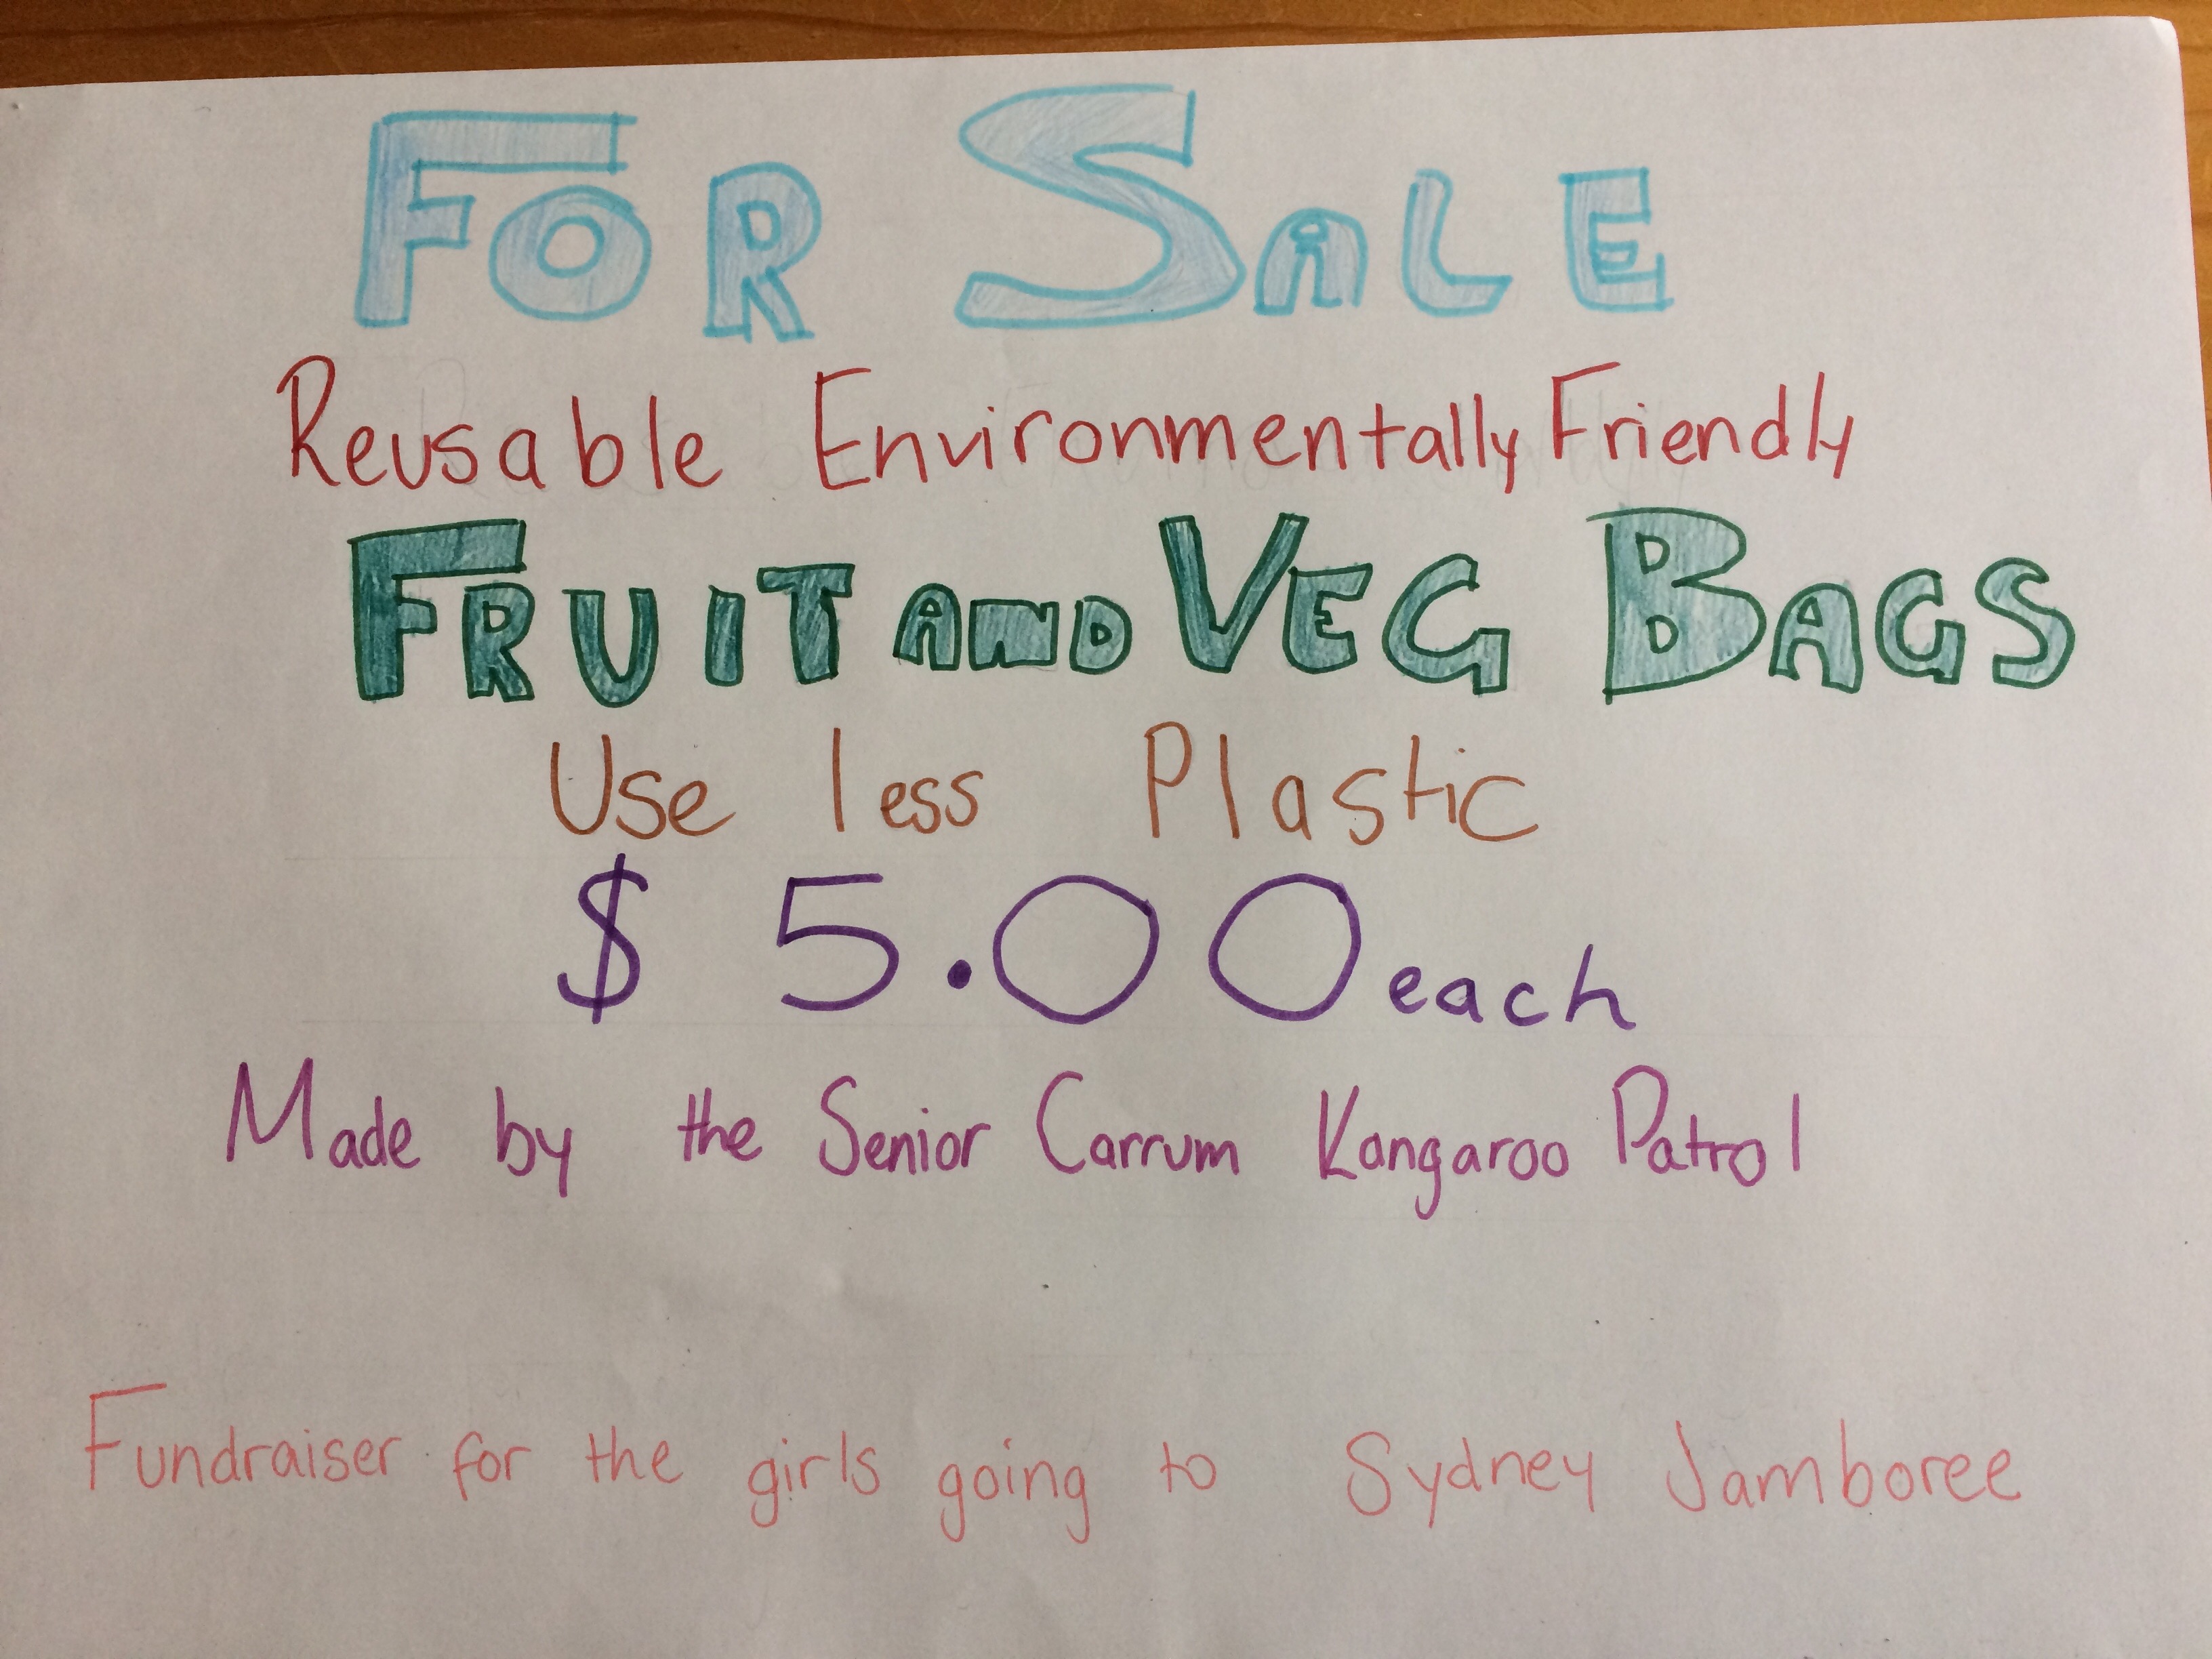 FOR SALE
Reusable Environmentally Friendly
FRUIT AND VEG BAGS
Use less Plastic
$ 5.00 each
Made by the Senior Carrum Kangaroo Patrol
Fundraiser for the girls going to Sydney Jamboree